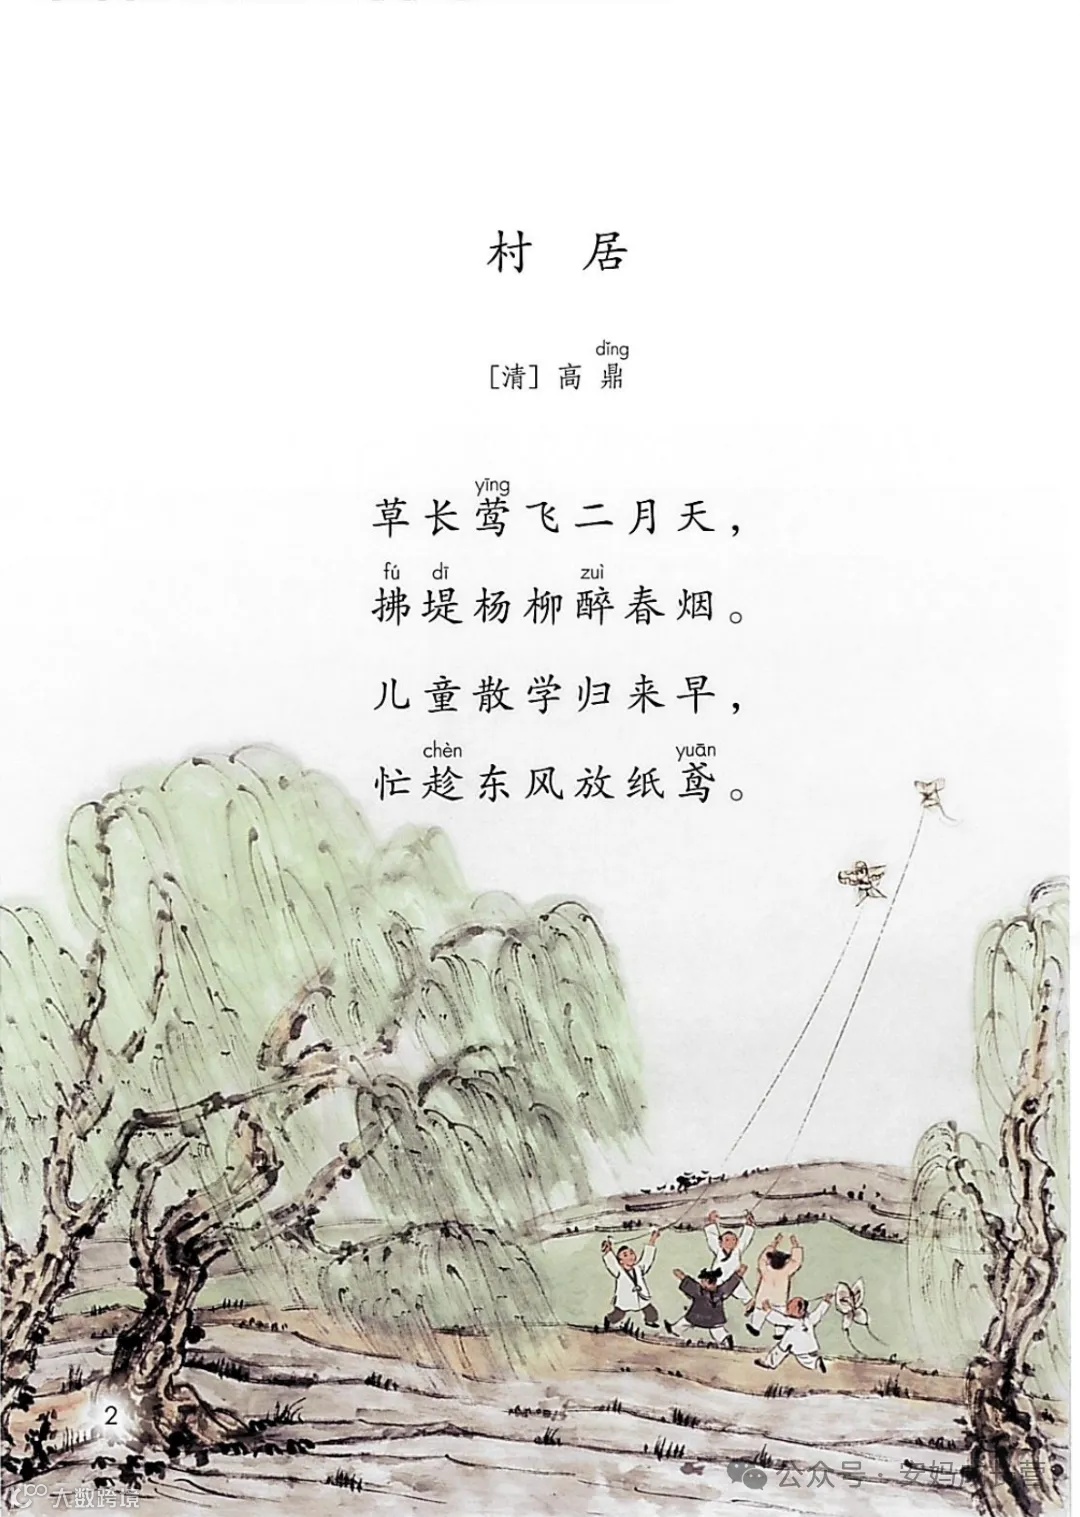 村 居
dǐng
[清] 高 鼎
yīng
草长莺飞二月天，
fú dī zuì
拂堤杨柳醉春烟。
儿童散学归来早，
chèn yuān
忙趁东风放纸鸢。
2
公众号 · 安妈
大数跨境